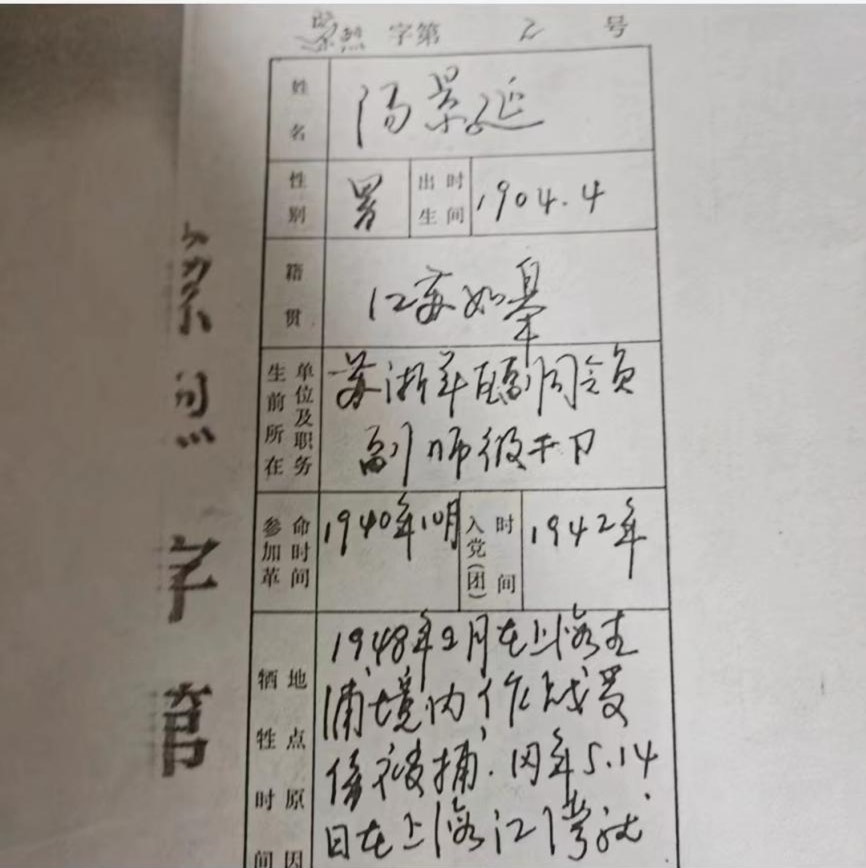 字第 号
姓名 汤景延
性别 男 出生时间 1904.4
籍贯 江苏如皋
生前所在单位及职务 苏浙军区副司令员
副师级干部
参加革命时间 1940年10月 入党(团)时间 1942年
牺牲时间地点原因 1948年2月在上海青
浦境内作战受
伤被捕.同年5.14
日在上海江湾就